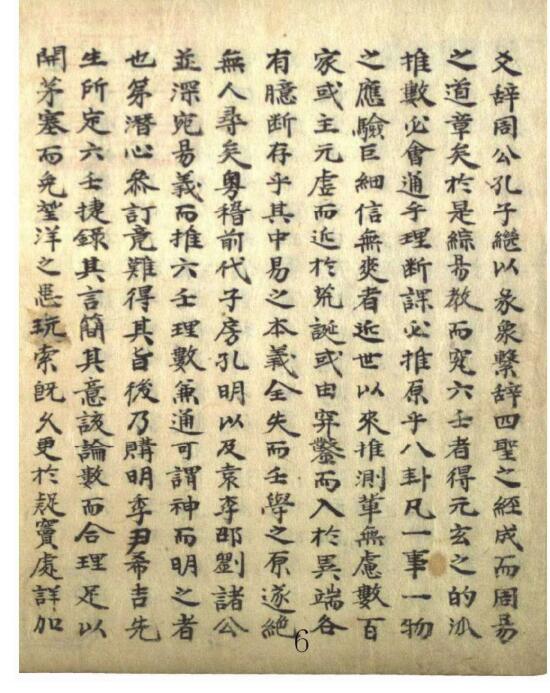 爻辞周公孔子繼以彖象繫辞四聖之經成而周易
之道章矣於是綜易教而究六壬者得元玄之的派
推數必會通乎理断課必推原乎八卦凡一事一物
之應驗巨細信無爽者近世以來推測軰無慮數百
家或主元虚而近於荒誕或由穿鑿而入於異端各
有臆断存乎其中易之本義全失而壬學之原遂絶
無人尋矣粤稽前代子房孔明以及袁李邵劉諸公
並深宛易義而推六壬理數兼通可謂神而明之者
也苐潜心叅訂竟難得其旨後乃購明季尹希吉先
生所定六壬捷錄其言簡其意該論數而合理足以
開茅塞而免望洋之愚玩索既久更於疑竇處詳加
6